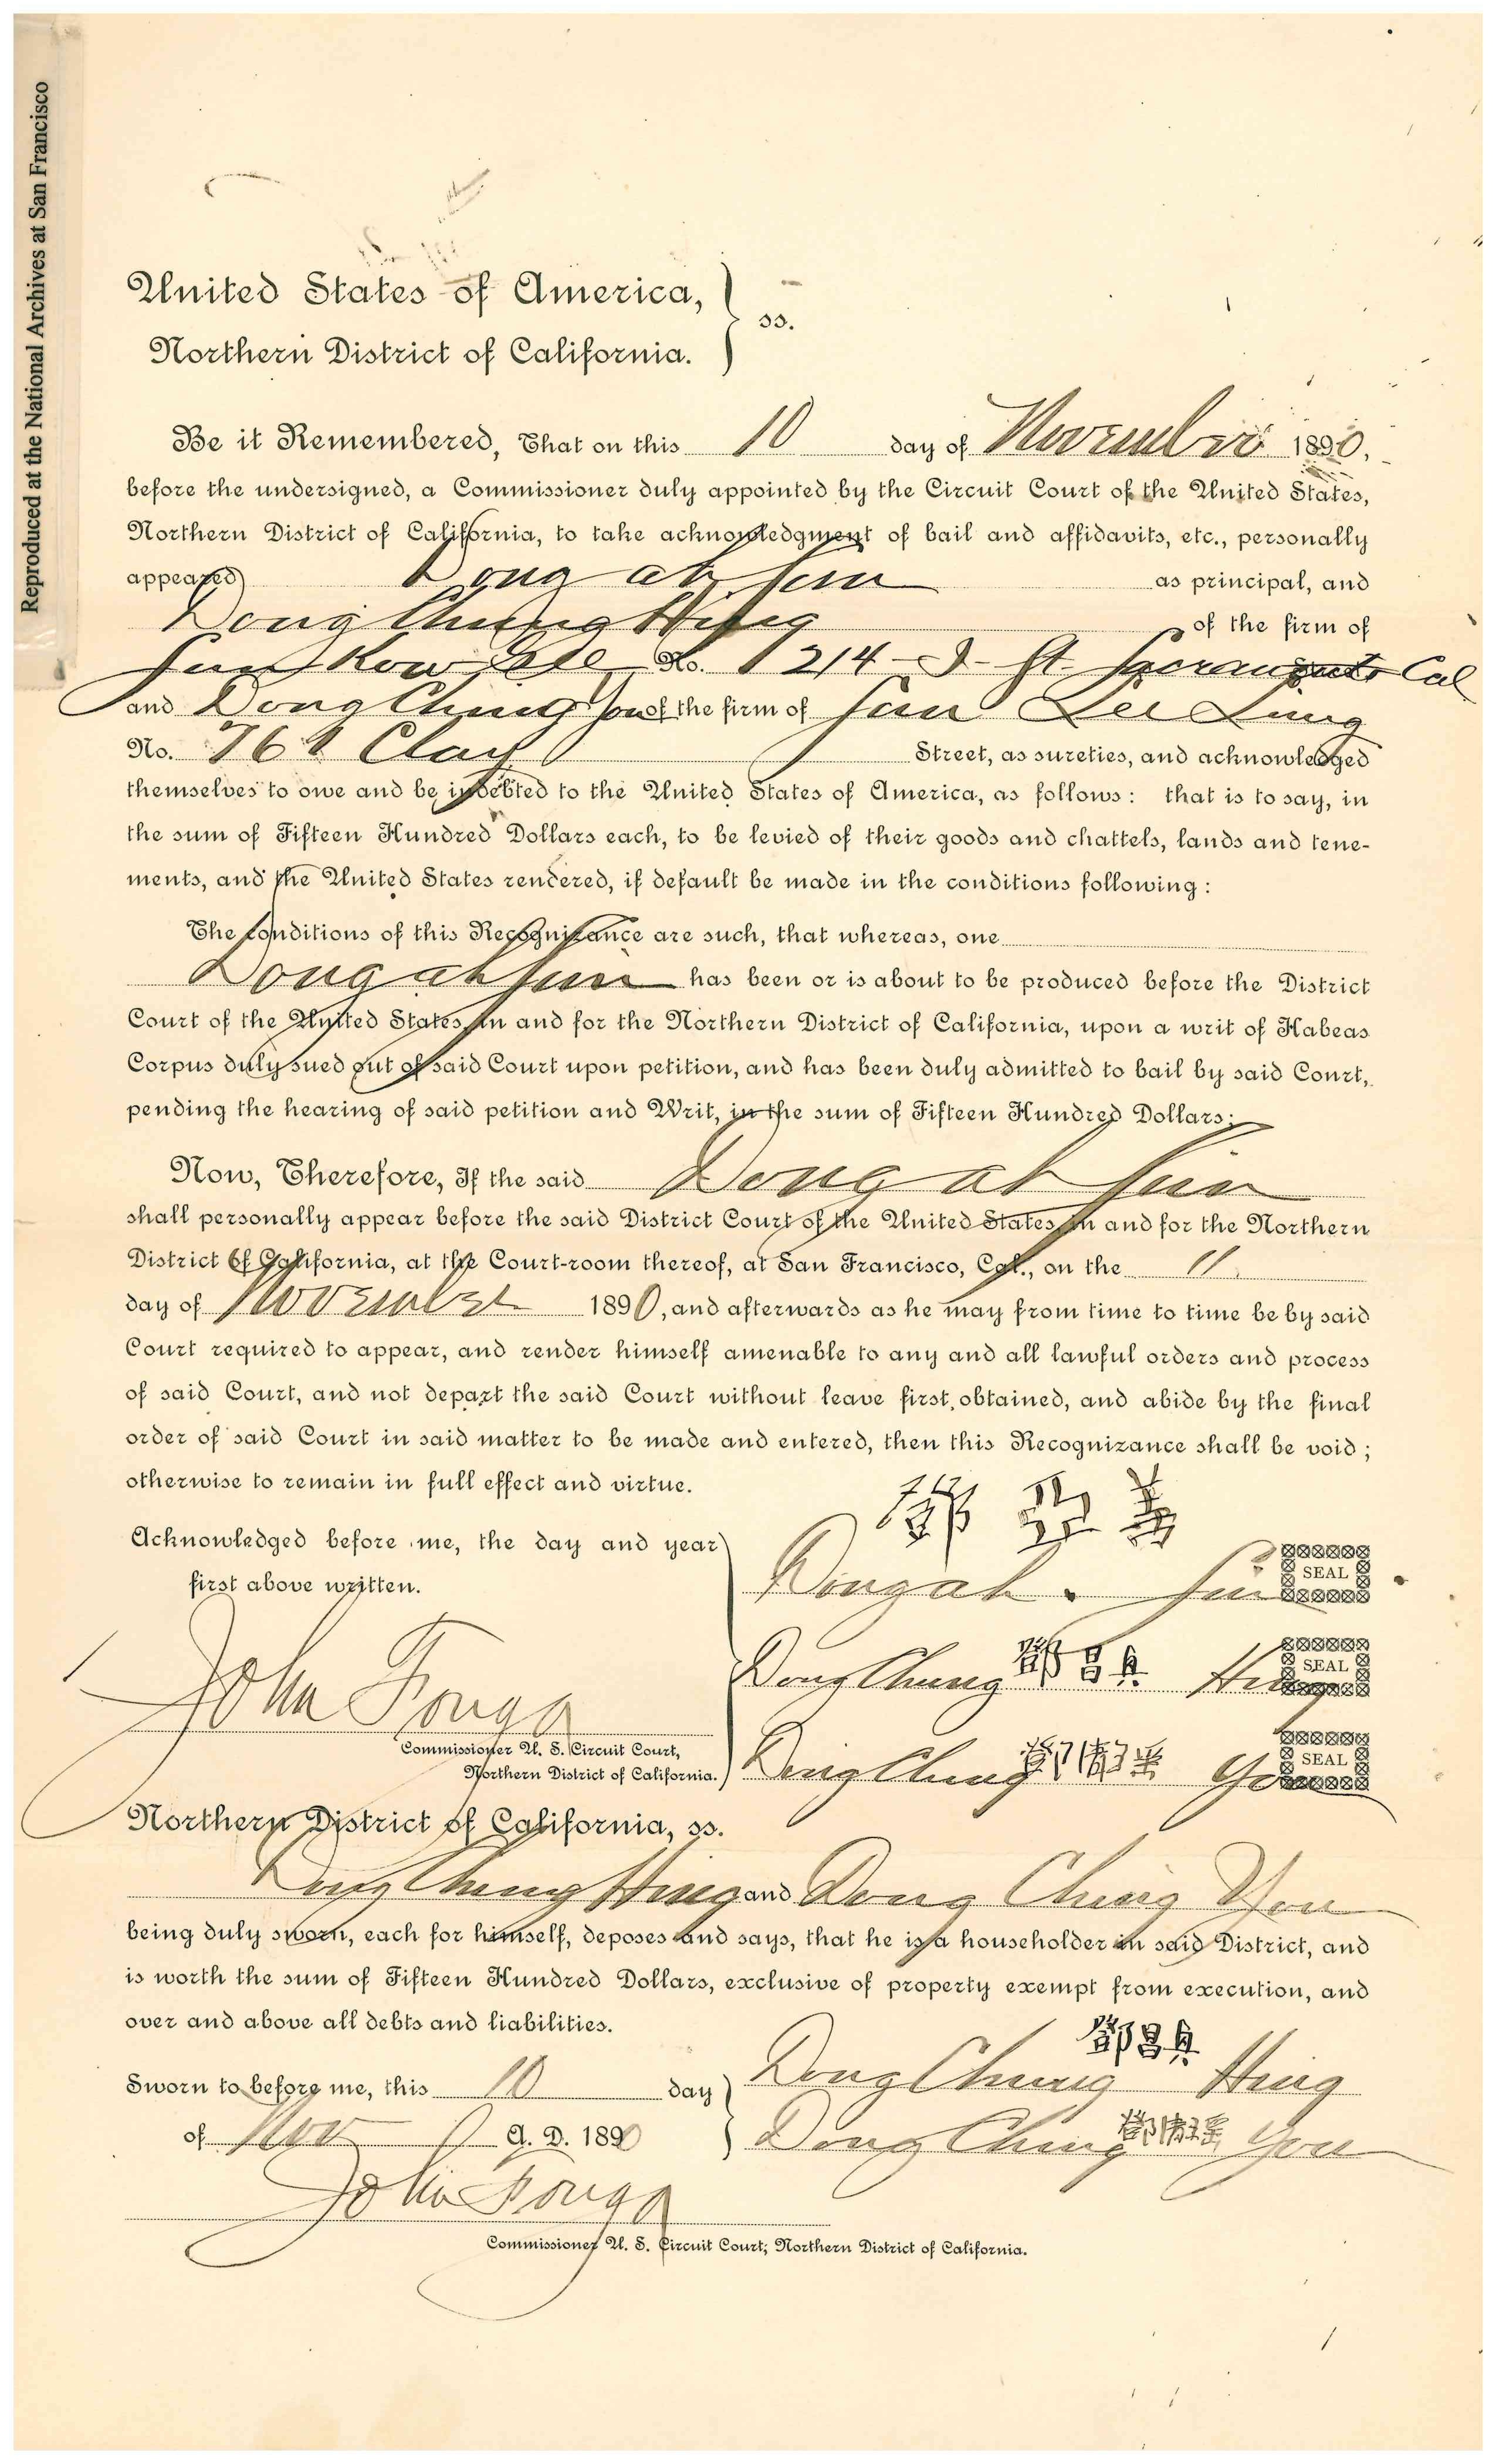 Reproduced at the National Archives at San Francisco
United States of America,
Northern District of California. } ss.
Be it Remembered, That on this 10 day of November 1890,
before the undersigned, a Commissioner duly appointed by the Circuit Court of the United States,
Northern District of California, to take acknowledgment of bail and affidavits, etc., personally
appeared Dong ah Sun as principal, and
Dong Chung Hing of the firm of
No. 1214 J St. Sacramento Cal
and Dong Ching You of the firm of Sun Lee Lung
No. 761 Clay Street, as sureties, and acknowledged
themselves to owe and be indebted to the United States of America, as follows: that is to say, in
the sum of Fifteen Hundred Dollars each, to be levied of their goods and chattels, lands and tene-
ments, and the United States rendered, if default be made in the conditions following:
The Conditions of this Recognizance are such, that whereas, one
Dong ah Sun has been or is about to be produced before the District
Court of the United States, in and for the Northern District of California, upon a writ of Habeas
Corpus duly sued out of said Court upon petition, and has been duly admitted to bail by said Court,
pending the hearing of said petition and Writ, in the sum of Fifteen Hundred Dollars;
Now, Therefore, If the said Dong ah Sun
shall personally appear before the said District Court of the United States, in and for the Northern
District of California, at the Court-room thereof, at San Francisco, Cal., on the 11
day of November 1890, and afterwards as he may from time to time be by said
Court required to appear, and render himself amenable to any and all lawful orders and process
of said Court, and not depart the said Court without leave first obtained, and abide by the final
order of said Court in said matter to be made and entered, then this Recognizance shall be void;
otherwise to remain in full effect and virtue.
鄧亞
Acknowledged before me, the day and year
first above written.
Dong ah Sun SEAL
Dong Chung 鄧昌 Hing SEAL
John Fouga
Commissioner U. S. Circuit Court,
Northern District of California.
Dong Ching 鄧 You SEAL
Northern District of California, ss.
Dong Chung Hing and Dong Ching You
being duly sworn, each for himself, deposes and says, that he is a householder in said District, and
is worth the sum of Fifteen Hundred Dollars, exclusive of property exempt from execution, and
over and above all debts and liabilities.
鄧昌
Sworn to before me, this 10 day Dong Chung Hing
of Nov A. D. 1890 Dong Ching 鄧 You
John Fouga
Commissioner U. S. Circuit Court, Northern District of California.